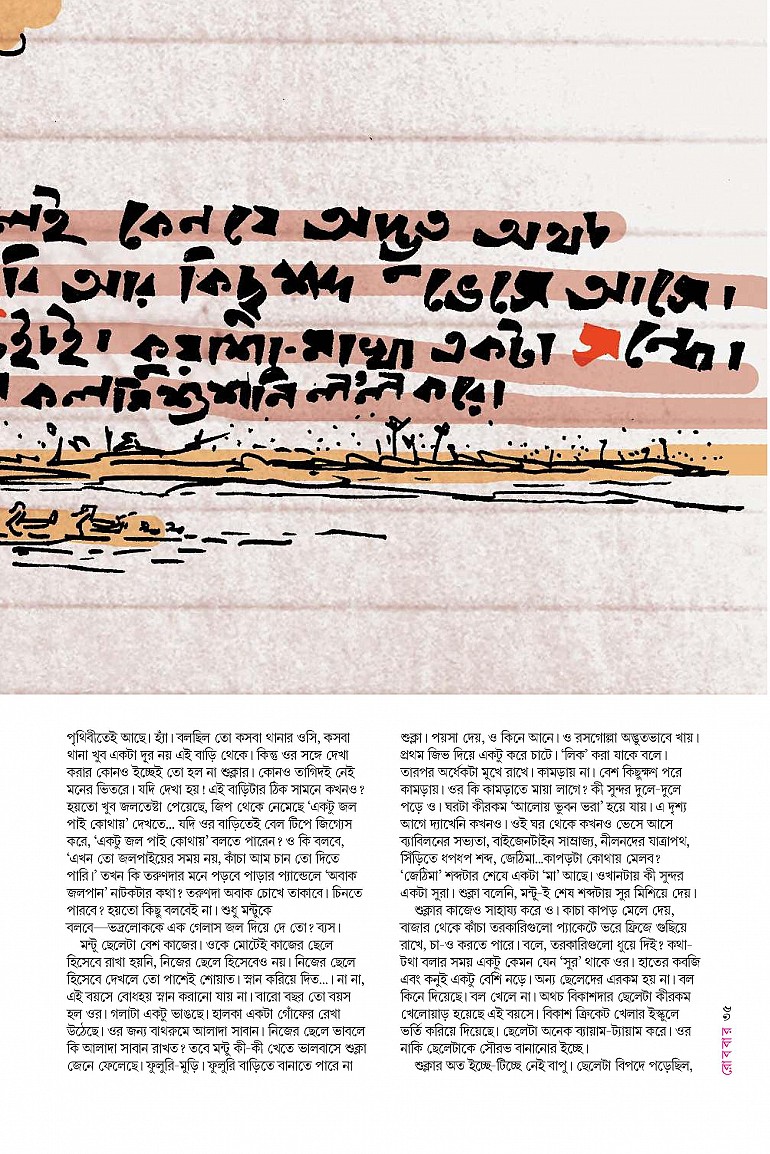 লই কেন যে অদ্ভুত অথচ
বি আর কিছু শব্দ ভেঙ্গে আসে।
ইচই। কুয়াশা-মাখা একটা সন্ধে।
কলমিশুশনি ল'ল করে।
পৃথিবীতেই আছে। হ্যাঁ। বলছিল তো কসবা থানার ওসি, কসবা
থানা খুব একটা দূর নয় এই বাড়ি থেকে। কিন্তু ওর সঙ্গে দেখা
করার কোনও ইচ্ছেই তো হল না শুক্লার। কোনও তাগিদই নেই
মনের ভিতরে। যদি দেখা হয়! এই বাড়িটার ঠিক সামনে কখনও?
হয়তো খুব জলতেষ্টা পেয়েছে, জিপ থেকে নেমেছে ‘একটু জল
পাই কোথায়’ দেখতে... যদি ওর বাড়িতেই বেল টিপে জিগ্যেস
করে, ‘একটু জল পাই কোথায়’ বলতে পারেন? ও কি বলবে,
‘এখন তো জলপাইয়ের সময় নয়, কাঁচা আম চান তো দিতে
পারি।’ তখন কি তরুণদার মনে পড়বে পাড়ার প্যান্ডেলে ‘অবাক
জলপান’ নাটকটার কথা? তরুণদা অবাক চোখে তাকাবে। চিনতে
পারবে? হয়তো কিছু বলবেই না। শুধু মন্টুকে
বলবে—ভদ্রলোককে এক গেলাস জল দিয়ে দে তো? ব্যস।
মন্টু ছেলেটা বেশ কাজের। ওকে মোটেই কাজের ছেলে
হিসেবে রাখা হয়নি, নিজের ছেলে হিসেবেও নয়। নিজের ছেলে
হিসেবে দেখলে তো পাশেই শোয়াত। স্নান করিয়ে দিত...। না না,
এই বয়সে বোধহয় স্নান করানো যায় না। বারো বছর তো বয়স
হল ওর। গলাটা একটু ভাঙছে। হালকা একটা গোঁফের রেখা
উঠেছে। ওর জন্য বাথরুমে আলাদা সাবান। নিজের ছেলে ভাবলে
কি আলাদা সাবান রাখত? তবে মন্টু কী-কী খেতে ভালবাসে শুক্লা
জেনে ফেলেছে। ফুলুরি-মুড়ি। ফুলুরি বাড়িতে বানাতে পারে না
শুক্লা। পয়সা দেয়, ও কিনে আনে। ও রসগোল্লা অদ্ভুতভাবে খায়।
প্রথম জিভ দিয়ে একটু করে চাটে। ‘লিক’ করা যাকে বলে।
তারপর অর্ধেকটা মুখে রাখে। কামড়ায় না। বেশ কিছুক্ষণ পরে
কামড়ায়। ওর কি কামড়াতে মায়া লাগে? কী সুন্দর দুলে-দুলে
পড়ে ও। ঘরটা কীরকম ‘আলোয় ভুবন ভরা’ হয়ে যায়। এ দৃশ্য
আগে দ্যাখেনি কখনও। ওই ঘর থেকে কখনও ভেসে আসে
ব্যাবিলনের সভ্যতা, বাইজেনটাইন সাম্রাজ্য, নীলনদের যাত্রাপথ,
সিঁড়িতে ধপধপ শব্দ, জেঠিমা...কাপড়টা কোথায় মেলব?
‘জেঠিমা’ শব্দটার শেষে একটা ‘মা’ আছে। ওখানটায় কী সুন্দর
একটা সুরা। শুক্লা বলেনি, মন্টু-ই শেষ শব্দটায় সুর মিশিয়ে দেয়।
শুক্লার কাজেও সাহায্য করে ও। কাচা কাপড় মেলে দেয়,
বাজার থেকে কাঁচা তরকারিগুলো প্যাকেটে ভরে ফ্রিজে গুছিয়ে
রাখে, চা-ও করতে পারে। বলে, তরকারিগুলো ধুয়ে দিই? কথা-
টথা বলার সময় একটু কেমন যেন ‘সুর’ থাকে ওর। হাতের কবজি
এবং কনুই একটু বেশি নড়ে। অন্য ছেলেদের এরকম হয় না। বল
কিনে দিয়েছে। বল খেলে না। অথচ বিকাশদার ছেলেটা কীরকম
খেলোয়াড় হয়েছে এই বয়সে। বিকাশ ক্রিকেট খেলার ইস্কুলে
ভর্তি করিয়ে দিয়েছে। ছেলেটা অনেক ব্যায়াম-ট্যায়াম করে। ওর
নাকি ছেলেটাকে সৌরভ বানানোর ইচ্ছে।
শুক্লার অত ইচ্ছে-টিচ্ছে নেই বাপু। ছেলেটা বিপদে পড়েছিল,
রোববার ৩৫